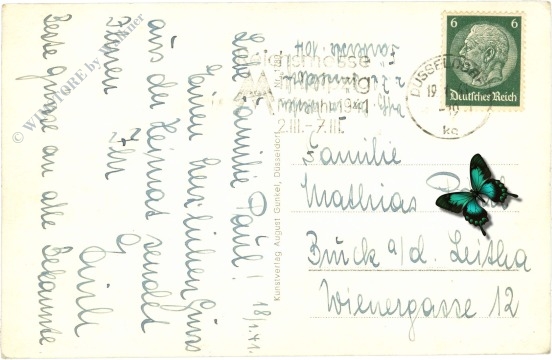 Liebe Familie Paul!
18/1.41.
Einen herzlichen Gruss
aus der Heimat sendet
Ihnen
Ihr
Beste Grüsse an alle Bekannte
© WINSTORE by Wallner
Kunstverlag August Gunkel, Düsseldorf
messe
Leipzig
1941
2.III.-7.III.
DÜSSELDORF
19
6 6
Deutsches Reich
Familie
Mathias
Bruck a/d. Leitha
Wienergasse 12